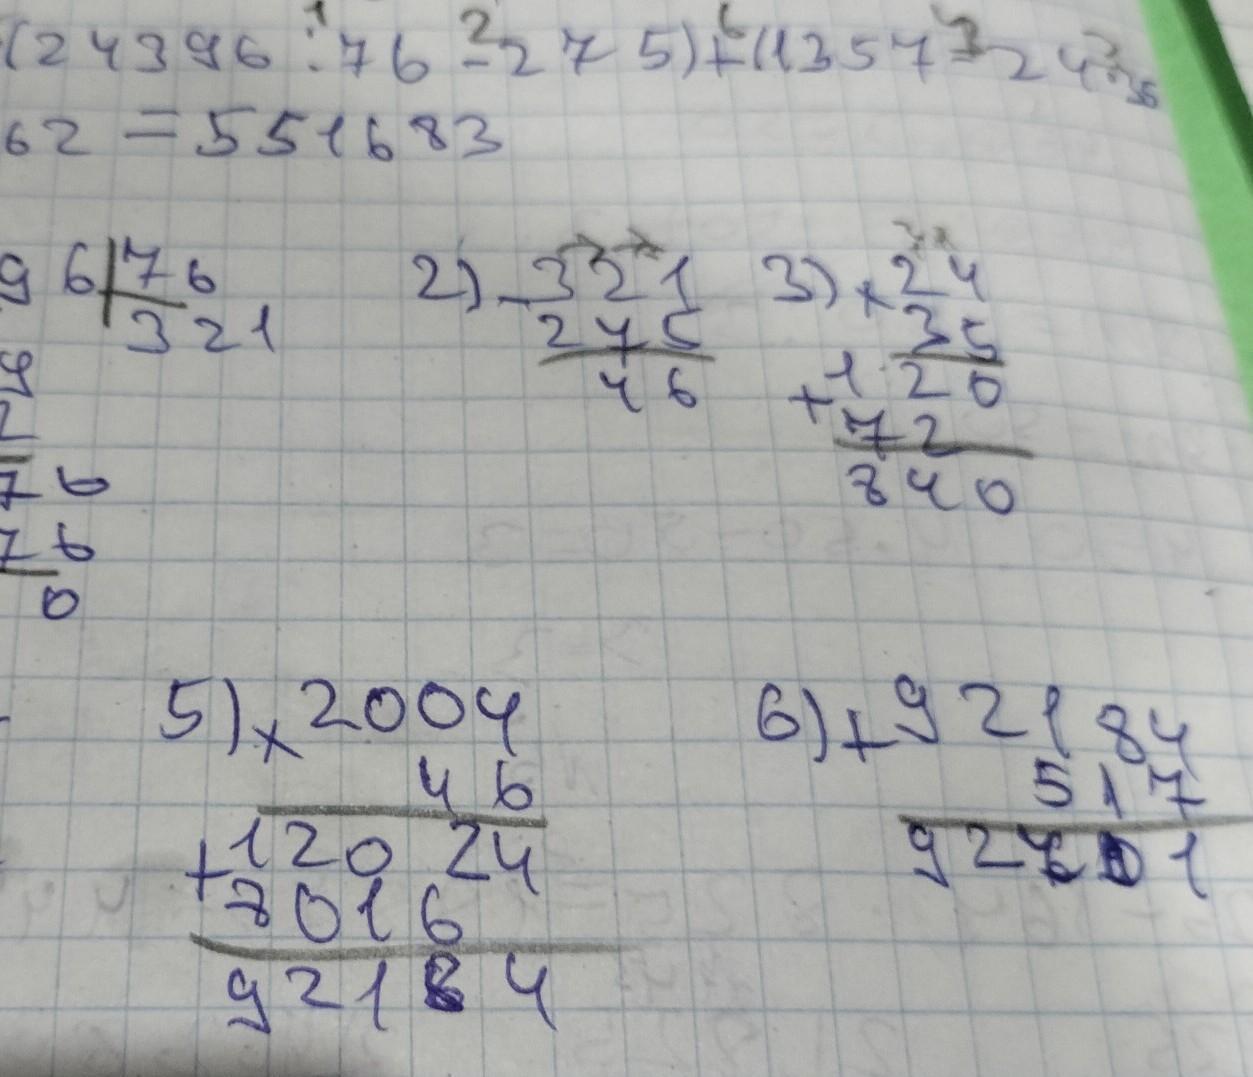 (24396 : 76 - 275) + (1357 - 24 · 35
62 = 551683
9 6 | 76
321
9
2
76
76
0
2) - 321
275
46
3) × 24
35
+ 120
72
840
5) × 2004
46
+ 12024
8016
92184
6) + 92184
517
92701